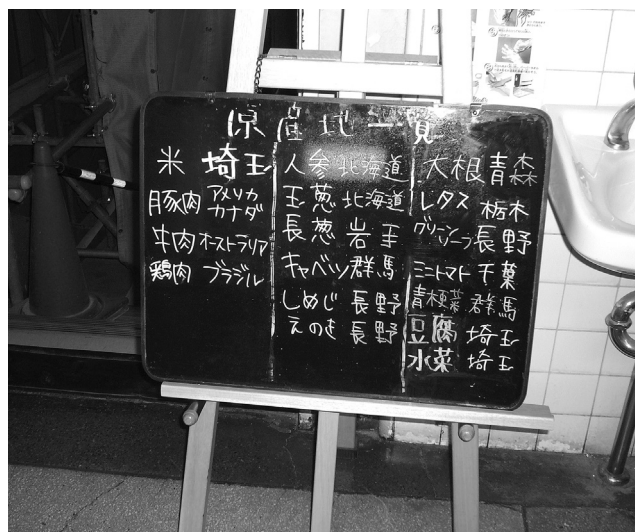 原産地一覧
米 埼玉
豚肉 アメリカ カナダ
牛肉 オーストラリア
鶏肉 ブラジル
人参 北海道
玉葱 北海道
長葱 岩手
キャベツ 群馬
しめじ 長野
えのき 長野
大根 青森
レタス 栃木
グリーンリーフ 長野
ミニトマト 千葉
青梗菜 群馬
豆腐 埼玉
水菜 埼玉